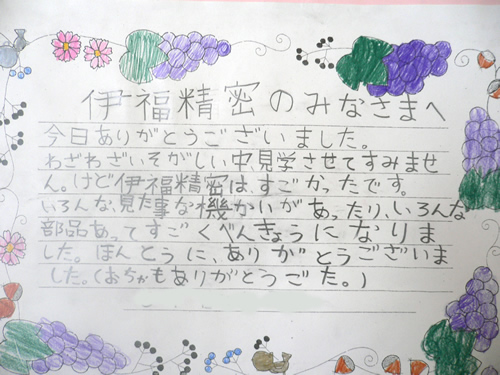 伊福精密のみなさまへ
今日ありがとうございました。
わざわざいそがしい中、見学させてすみませ
ん。けど伊福精密は、すごかったです。
いろんな、見た事な機かいがあったり、いろんな
部品あってすごくべんきょうになりま
した。ほんとうに、ありがとうございま
した。(おちゃもありがとうごた。)